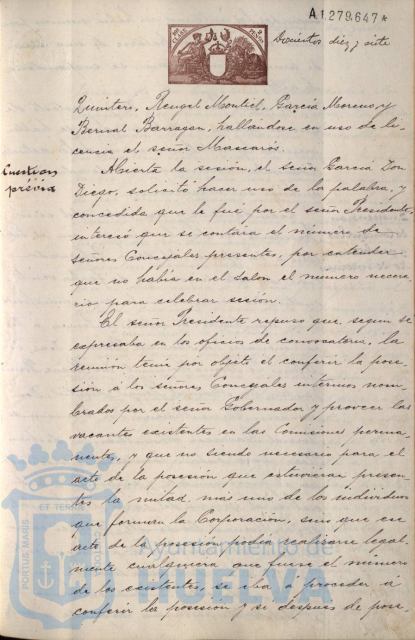 A1.279.647*
Doscientos diez y siete
Quintero, Rengel Montiel, García Moreno, y
Bernal Barragan, hallándose en uso de li-
cencia el señor Mascarós.
Cuestion
prévia
Abierta la sesión, el señor García Don
Diego, solicitó hacer uso de la palabra, y
concedida que le fué por el señor Presidente,
interesó que se contara el número de
señores Concejales presentes, por entender
que no había en el salon el número nece-
rio para celebrar sesión.
El señor Presidente repuso que, segun se
expresaba en los oficios de convocatoria, la
reunión tenia por objeto el conferir la pose-
sión á los señores Concejales interinos nom-
brados por el señor Gobernador y proveer las
vacantes existentes en las Comisiones perma-
nentes, y que no siendo necesario para el
acto de la posesión que estuvieran presen-
tes la mitad más uno de los individuos
que forman la Corporación, sino que ese
acto de la posesión podia realizarse legal-
mente cualquiera que fuese el número
de los asistentes, se iba á proceder á
conferir la posesión y si despues de pose-
PORTUS MARIS
ET TERRÆ
Ayuntamiento de
HUELVA